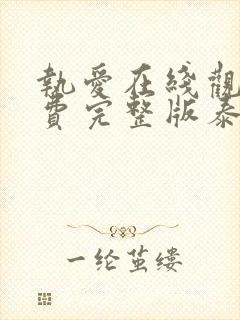 執愛在綫觀
費完整版泰
一纶茧缕